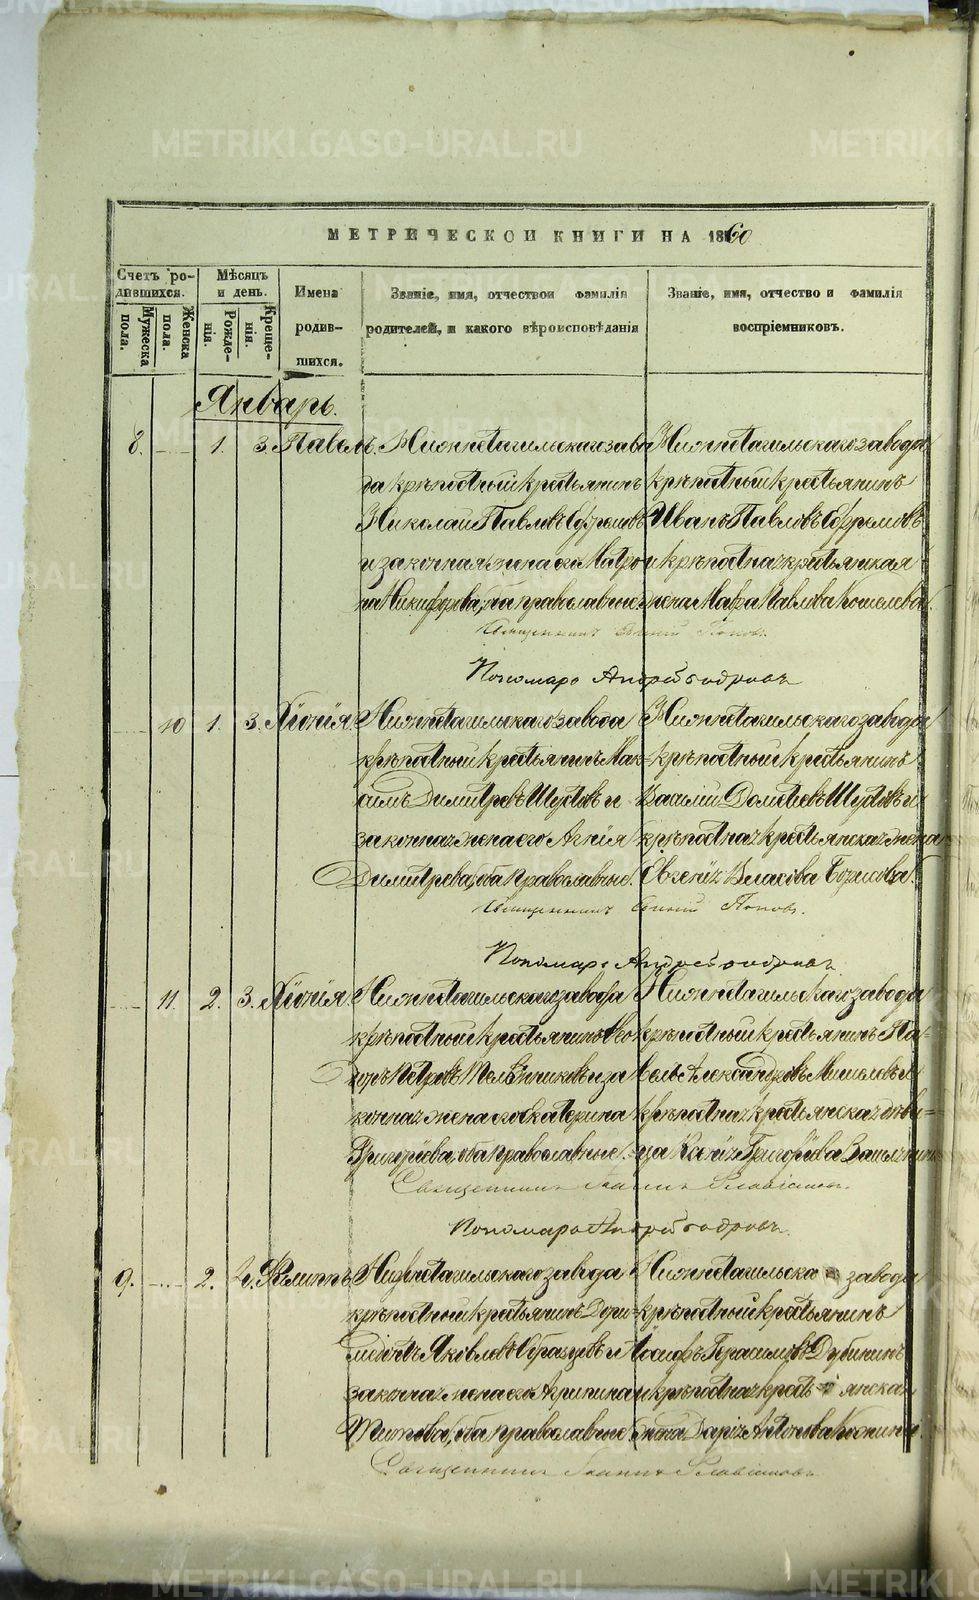 METRIKI.GASO-URAL.RU
МЕТРИЧЕСКОЙ КНИГИ НА 1860
Счетъ ро-
дившихся.
Мужеска
пола.
Женска
пола.
Мѣсяцъ
и день.
Рожде-
нія.
Креще-
нія.
Имена
родив-
шихся.
Званіе, имя, отчество и фамилія
родителей, и какого вѣроисповѣданія
Званіе, имя, отчество и фамилія
воспріемниковъ.
Январь.
8. 1. 3. Павелъ. Нижнетагильскаго заво
да крѣпостный крестьянинъ
Николай Павловъ Ефремовъ
и законная жена его Матро
на Никифорова, оба православные
Нижнетагильскаго завода
крѣпостный крестьянинъ
Иванъ Павловъ Ефремовъ
и крѣпостная крестьянская
жена Мавра Павлова Кошелева.
Священникъ Попов.
Пономарь Андрей
10 1. 3. Нижнетагильскаго завода
крѣпостный крестьянинъ Мак-
симъ Димитревъ Шустовъ и
законная жена его Агнія
Димитрева, оба православные.
Нижнетагильскаго завода
крѣпостный крестьянинъ
Василій Дометіевъ Шустовъ и
крѣпостная крестьянская жена
Евгенія Власова
Священникъ Поповъ.
Пономарь Андрей
11. 2. 3. Нижнетагильскаго завода
крѣпостный крестьянинъ
Петровъ Мельниковъ и за
конная жена его Екатерина
Григорьева, оба православные.
Нижнетагильскаго завода
крѣпостный крестьянинъ
Александровъ и
крѣпостная крестьянская дѣви-
ца Григорьева
Священникъ
Пономарь Андрей
9. 2. Филиппъ Нижнетагильскаго завода
крѣпостный крестьянинъ
Яковлевъ Образцевъ и
законная жена его Агрипина
Титова, оба православные
Нижнетагильска завода
крѣпостный крестьянинъ
Іосифъ Герасимовъ Дубининъ
и крѣпостная кресть янская
жена Дарія Антонова
Священникъ